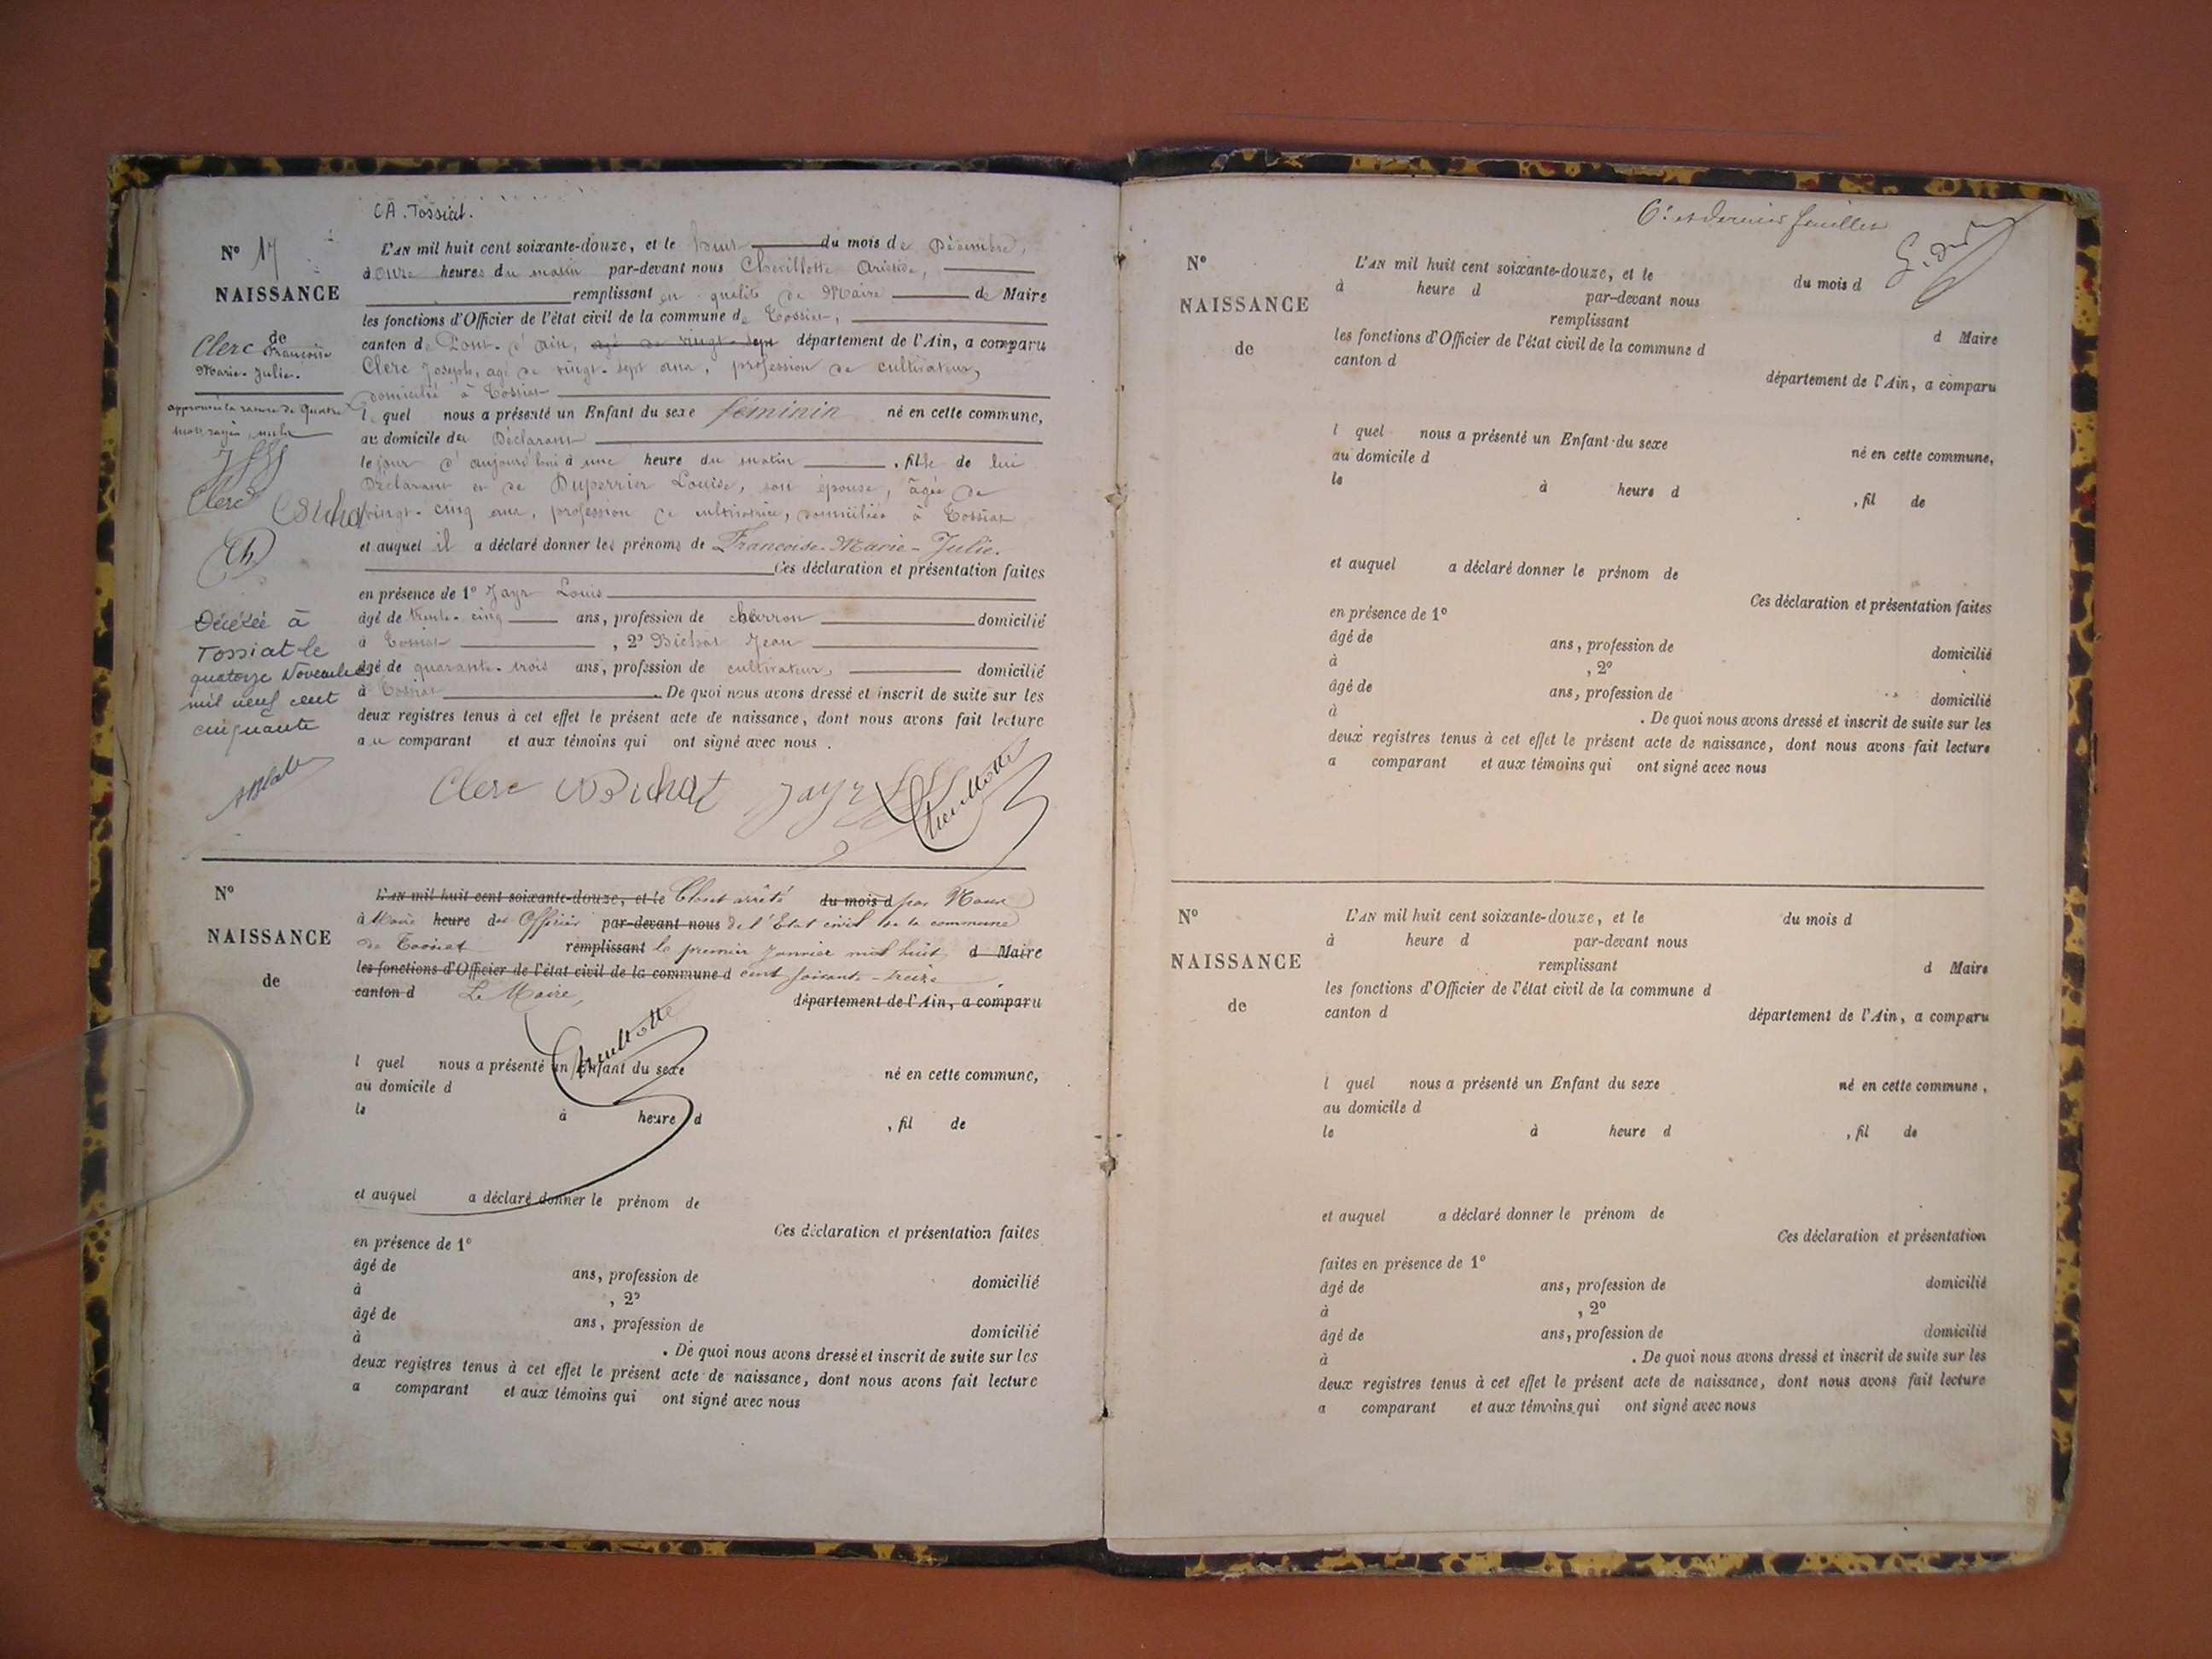 CA. Tossiat.
N° 17
NAISSANCE
de
Clerc Françoise
Marie-Julie.
approuvé la rature de quatre
mots rayés, nuls
Clerc
Ch
Décédée à
Tossiat le
quatorze Novembre
mil neuf cent
cinquante
L'AN mil huit cent soixante-douze, et le huit du mois de Décembre,
à onze heures du matin par-devant nous Chevillotte Aristide,
remplissant en qualité de Maire de Maire
les fonctions d'Officier de l'état civil de la commune de Tossiat,
canton de Pont-d'Ain, agé de vingt-sept département de l'Ain, a comparu
Clerc Joseph, agé de vingt-sept ans, profession de cultivateur,
domicilié à Tossiat
lequel nous a présenté un Enfant du sexe féminin né en cette commune,
au domicile du Déclarant
le jour d'aujourd'hui à une heure du matin, fille de lui
Déclarant et de Duperrier Louise, son épouse, âgée de
vingt-cinq ans, profession de cultivatrice, domiciliée à Tossiat
et auquel il a déclaré donner les prénoms de Françoise-Marie-Julie.
Ces déclaration et présentation faites
en présence de 1° Jayr Louis
âgé de trente-cinq ans, profession de charron domicilié
à Tossiat, 2° Bichat Jean
âgé de quarante-trois ans, profession de cultivateur, domicilié
à Tossiat. De quoi nous avons dressé et inscrit de suite sur les
deux registres tenus à cet effet le présent acte de naissance, dont nous avons fait lecture
au comparant et aux témoins qui ont signé avec nous.
Clerc Bichat Jayr Chevillotte
N°
NAISSANCE
de
L'AN mil huit cent soixante-douze, et le Clos et arrêté du mois d par Nous
à Maire heure d Officier par-devant nous de l'Etat civil de la commune
de Tossiat remplissant le premier Janvier mil huit d Maire
les fonctions d'Officier de l'état civil de la commune d cent soixante-treize
canton d Le Maire, département de l'Ain, a comparu
Chevillotte
l quel nous a présenté un Enfant du sexe né en cette commune,
au domicile d
le à heure d , fil de
et auquel a déclaré donner le prénom de
Ces déclaration et présentation faites
en présence de 1°
âgé de ans, profession de domicilié
à , 2°
âgé de ans, profession de domicilié
à . De quoi nous avons dressé et inscrit de suite sur les
deux registres tenus à cet effet le présent acte de naissance, dont nous avons fait lecture
a comparant et aux témoins qui ont signé avec nous
6e et dernier feuillet
N°
NAISSANCE
de
L'AN mil huit cent soixante-douze, et le du mois d
à heure d par-devant nous
remplissant d Maire
les fonctions d'Officier de l'état civil de la commune d
canton d département de l'Ain, a comparu
l quel nous a présenté un Enfant du sexe né en cette commune,
au domicile d
le à heure d , fil de
et auquel a déclaré donner le prénom de
Ces déclaration et présentation faites
en présence de 1°
âgé de ans, profession de domicilié
à , 2°
âgé de ans, profession de domicilié
à . De quoi nous avons dressé et inscrit de suite sur les
deux registres tenus à cet effet le présent acte de naissance, dont nous avons fait lecture
a comparant et aux témoins qui ont signé avec nous
N°
NAISSANCE
de
L'AN mil huit cent soixante-douze, et le du mois d
à heure d par-devant nous
remplissant d Maire
les fonctions d'Officier de l'état civil de la commune d
canton d département de l'Ain, a comparu
l quel nous a présenté un Enfant du sexe né en cette commune,
au domicile d
le à heure d , fil de
et auquel a déclaré donner le prénom de
Ces déclaration et présentation
faites en présence de 1°
âgé de ans, profession de domicilié
à , 2°
âgé de ans, profession de domicilié
à . De quoi nous avons dressé et inscrit de suite sur les
deux registres tenus à cet effet le présent acte de naissance, dont nous avons fait lecture
a comparant et aux témoins qui ont signé avec nous